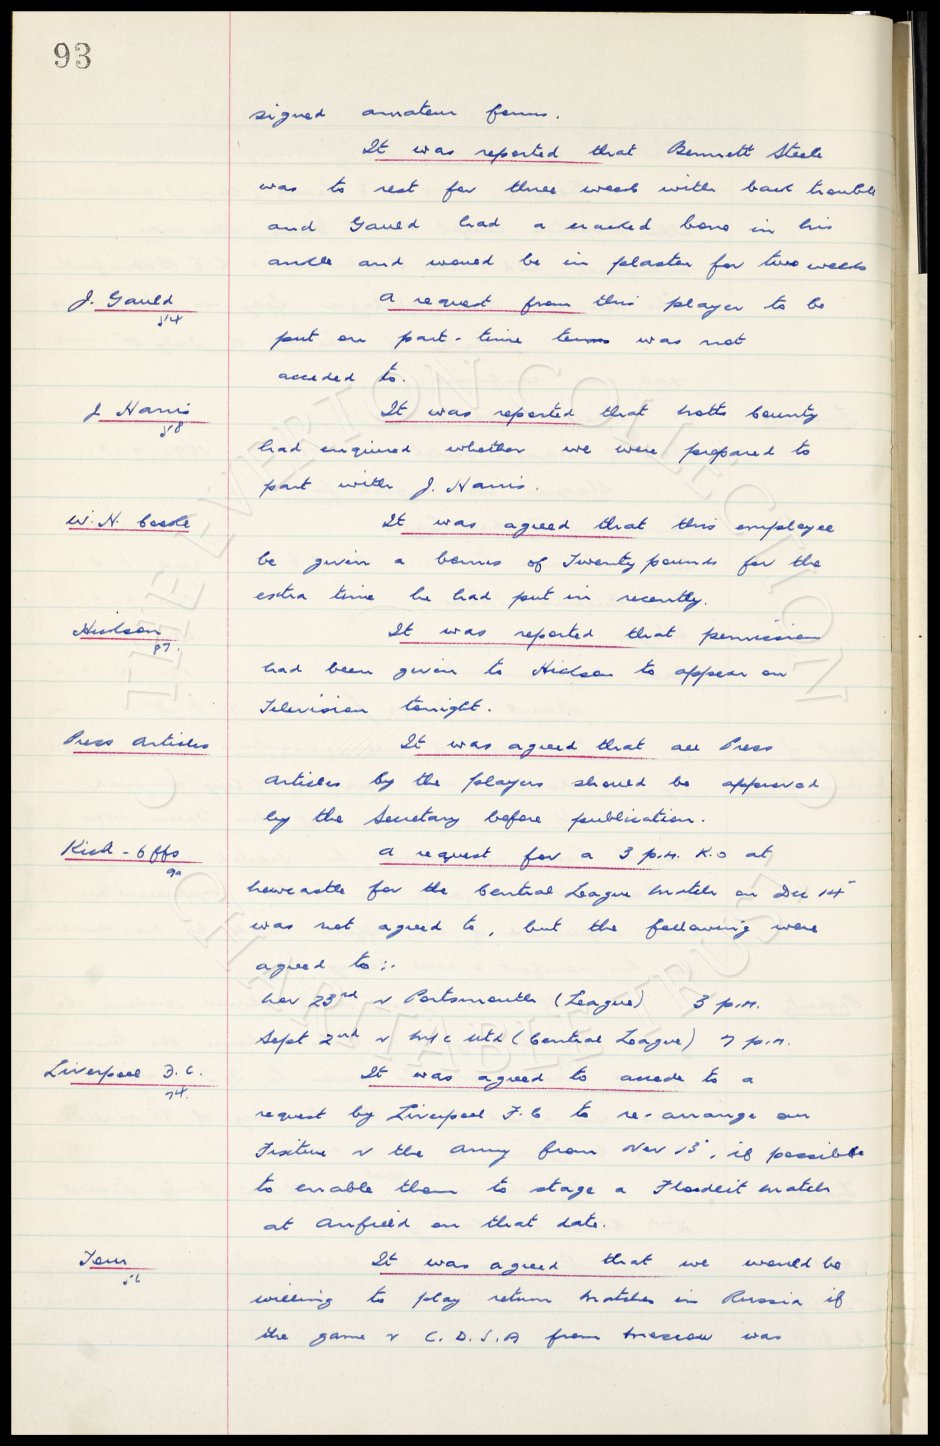 93
signed amateur forms.
It was reported that Bennett Steele
was to rest for three weeks with back trouble
and Gauld had a cracked bone in his
ankle and would be in plaster for two weeks
J. Gauld
54
A request from this player to be
put on part-time terms was not
acceded to.
J Harris
58
It was reported that Notts County
had enquired whether we were prepared to
part with J. Harris.
W. H. Cooke
It was agreed that this employee
be given a bonus of Twenty pounds for the
extra time he had put in recently.
Hickson
87.
It was reported that permission
had been given to Hickson to appear on
Television tonight.
Press Articles
It was agreed that all Press
articles by the players should be approved
by the Secretary before publication.
Kick-Offs
90
A request for a 3 p.m. K.O at
Newcastle for the Central League match on Dec 14
was not agreed to, but the following were
agreed to :-
Nov 23rd v Portsmouth (League) 3 p.m.
Sept 2nd v M/c Utd (Central League) 7 p.m.
Liverpool F.C.
74.
It was agreed to accede to a
request by Liverpool F.C to re-arrange our
Fixture v the Army from Nov 13, if possible
to enable them to stage a Floodlit match
at Anfield on that date.
Tour
56
It was agreed that we would be
willing to play return matches in Russia if
the game v C.D.S.A from Moscow was
THE EVERTON COLLECTION
CHARITABLE TRUST